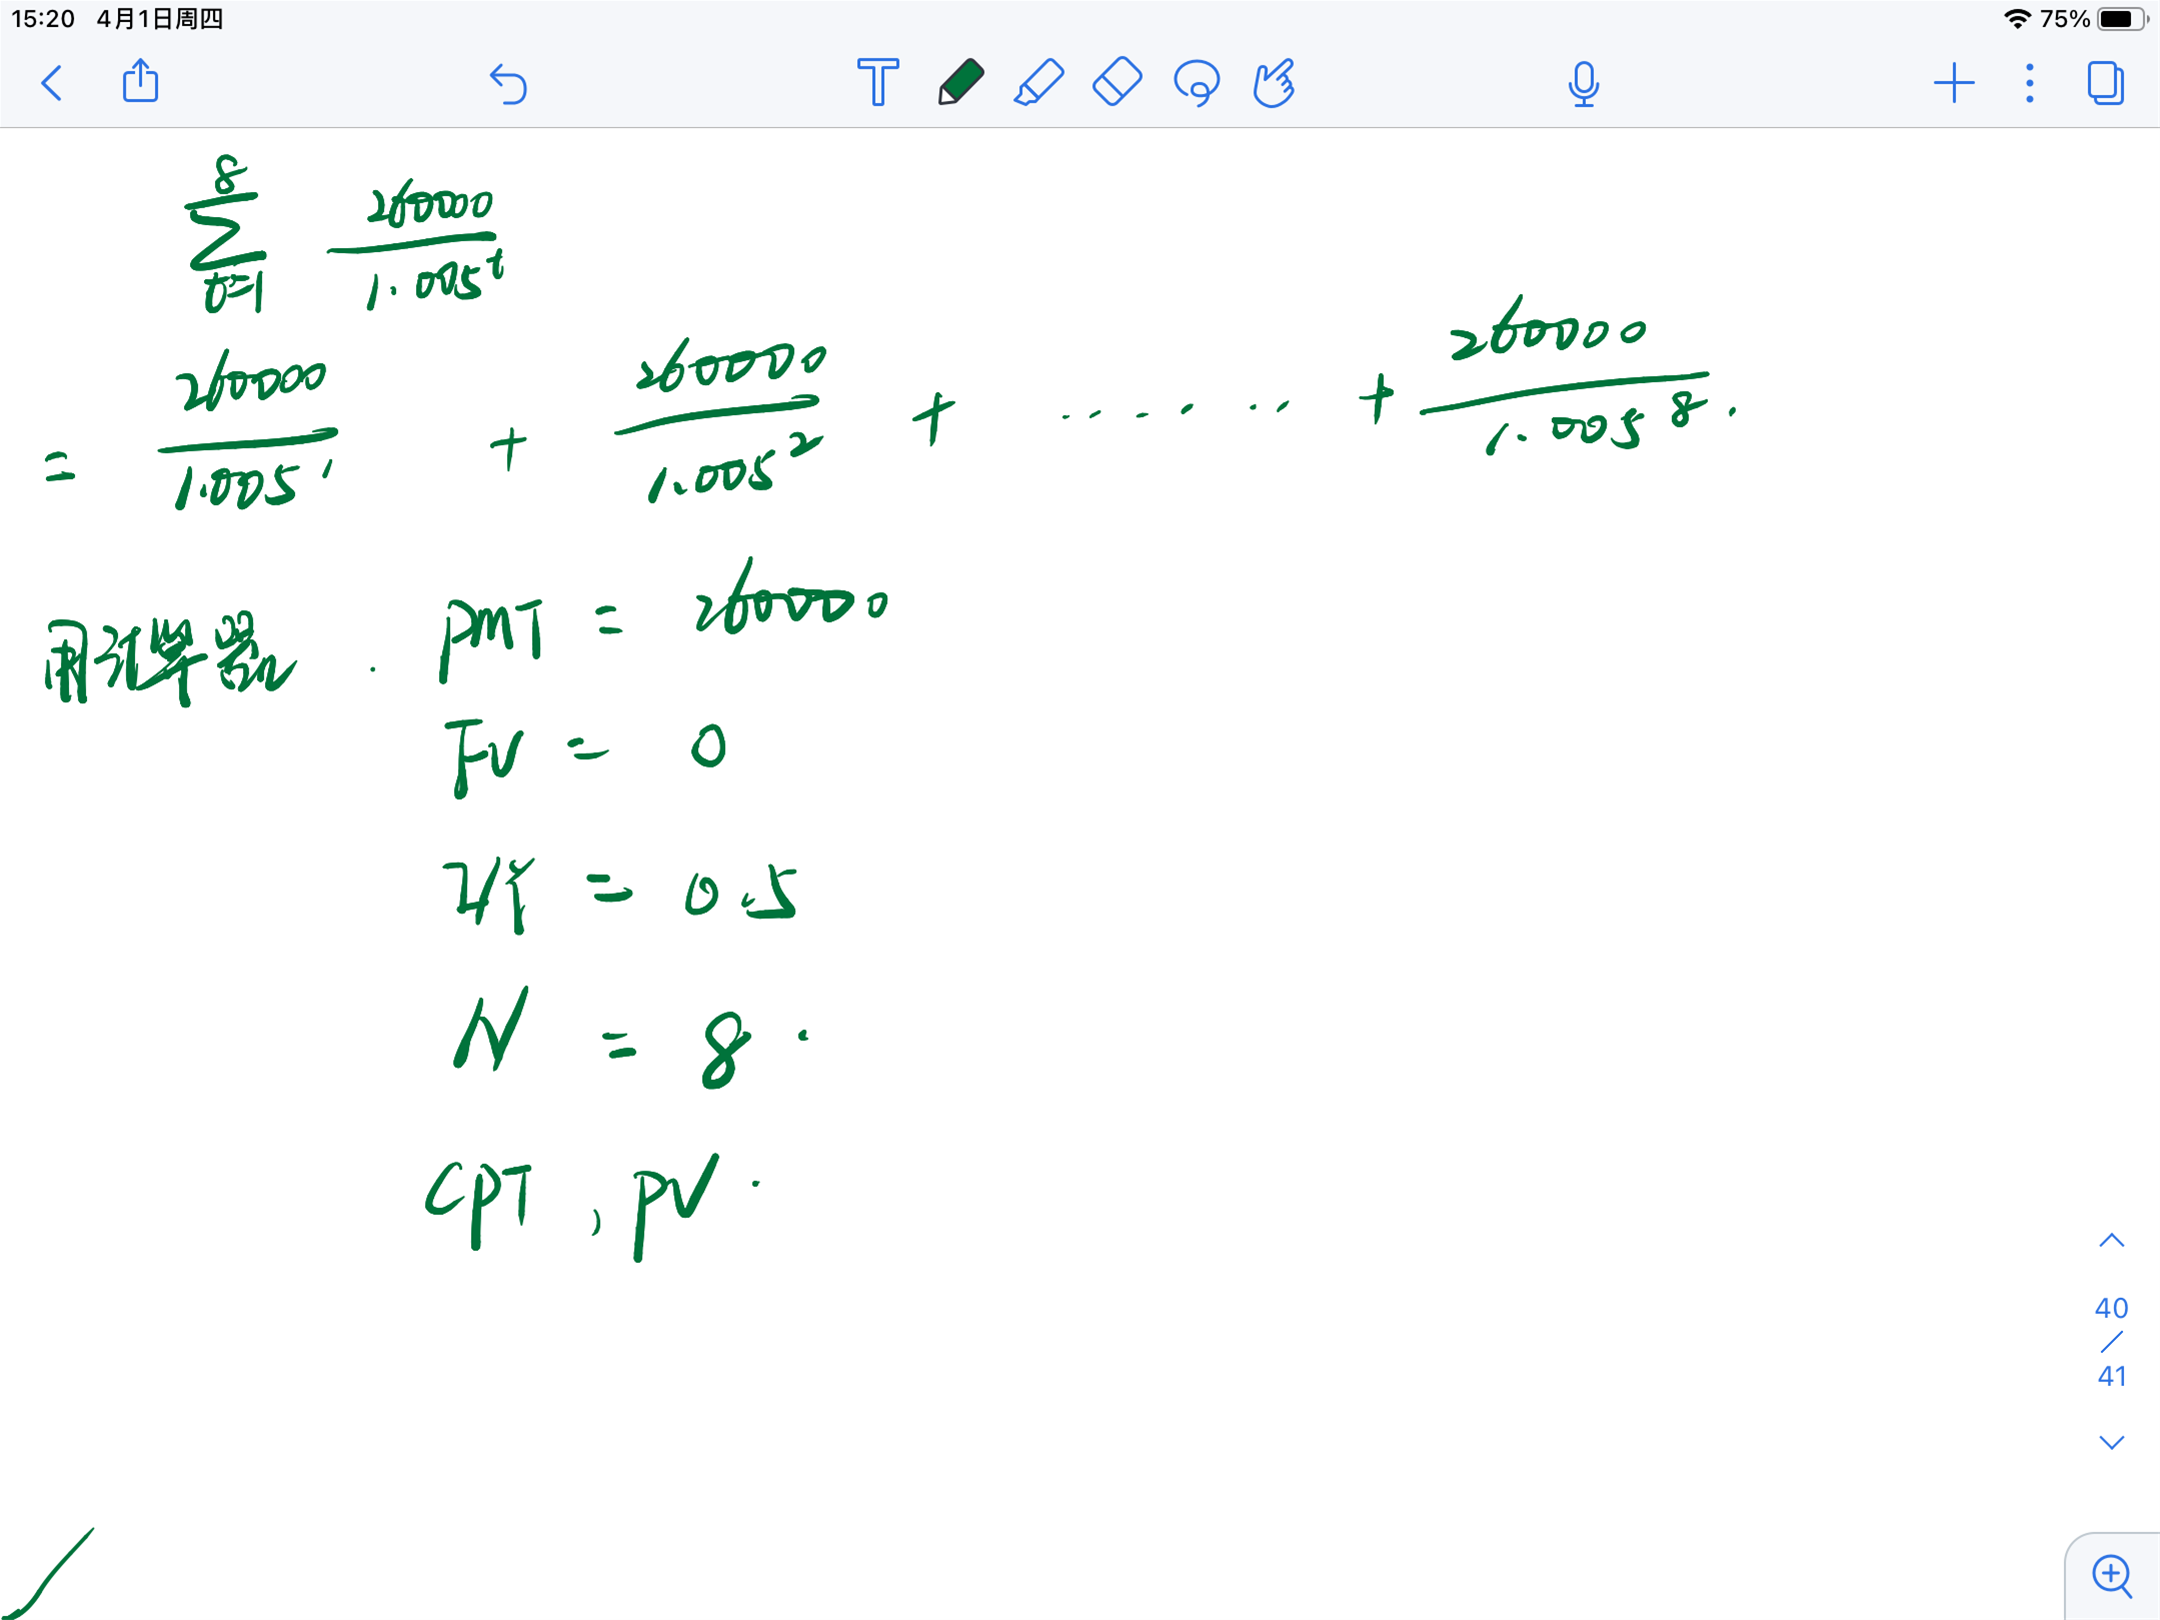 15:20 4月1日周四 75%
8
∑ 260000 / 1.005^t
t=1
= 260000 / 1.005^1 + 260000 / 1.005^2 + ...... + 260000 / 1.005^8 .
用计算器 . PMT = 260000
FV = 0
I/Y = 0.5
N = 8 .
CPT , PV .
40
/
41